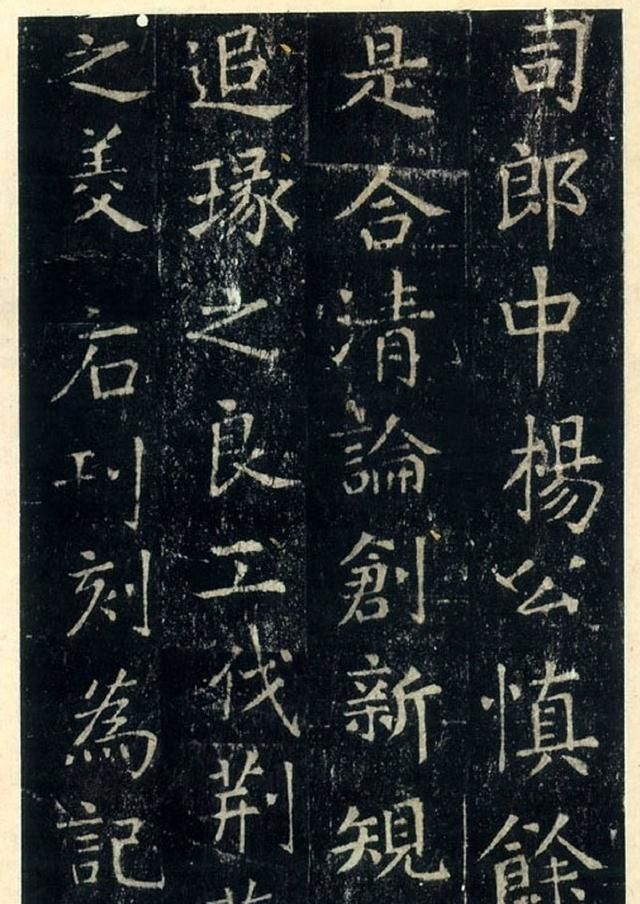 司郎中楊公慎餘
是合清論創新規
追琢之良工伐荊
之美石刊刻為記